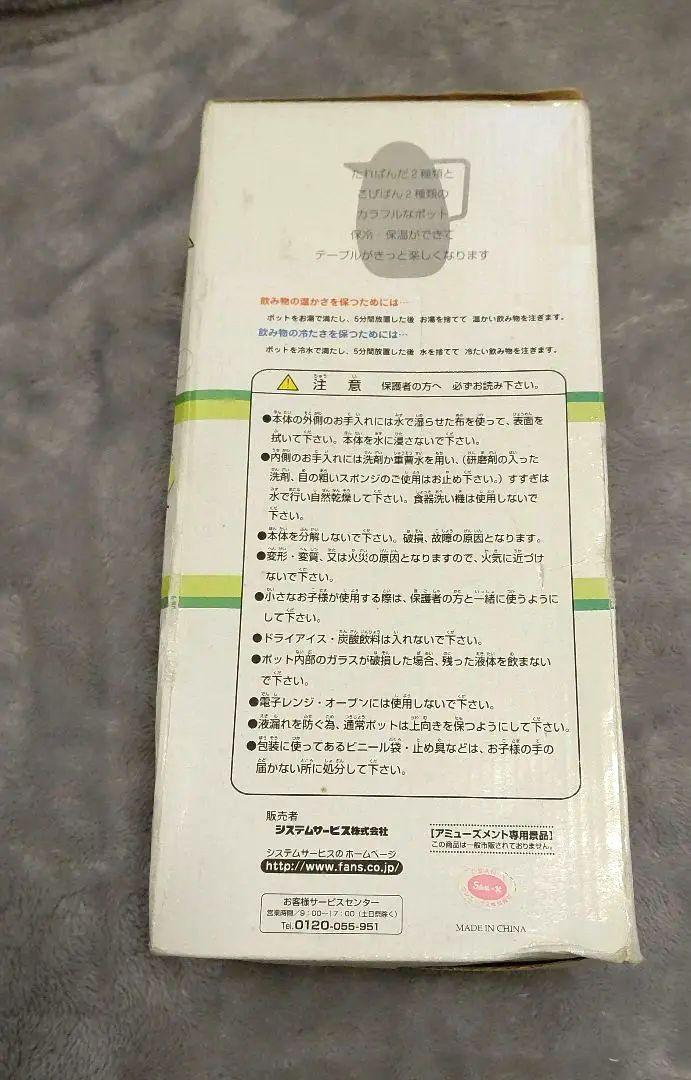 たれぱんだ2種類と
こげぱん2種類の
カラフルなポット
保冷・保温ができて
テーブルがきっと楽しくなります
飲み物の温かさを保つためには…
ポットをお湯で満たし、5分間放置した後 お湯を捨てて 温かい飲み物を注ぎます。
飲み物の冷たさを保つためには…
ポットを冷水で満たし、5分間放置した後 水を捨てて 冷たい飲み物を注ぎます。
注意 保護者の方へ 必ずお読み下さい。
●本体の外側のお手入れには水で湿らせた布を使って、表面を
拭いて下さい。本体を水に浸さないで下さい。
●内側のお手入れには洗剤か重曹水を用い、(研磨剤の入った
洗剤、目の粗いスポンジのご使用はお止め下さい。)すすぎは
水で行い自然乾燥して下さい。食器洗い機は使用しないで
下さい。
●本体を分解しないで下さい。破損、故障の原因となります。
●変形・変質、又は火災の原因となりますので、火気に近づけ
ないで下さい。
●小さなお子様が使用する際は、保護者の方と一緒に使うように
して下さい。
●ドライアイス・炭酸飲料は入れないで下さい。
●ポット内部のガラスが破損した場合、残った液体を飲まない
で下さい。
●電子レンジ・オーブンには使用しないで下さい。
●液漏れを防ぐ為、通常ポットは上向きを保つようにして下さい。
●包装に使ってあるビニール袋・止め具などは、お子様の手の
届かない所に処分して下さい。
販売者
システムサービス株式会社
システムサービスの ホームページ
http://www.fans.co.jp/
お客様サービスセンター
営業時間/9:00~17:00(土日祭除く)
Tel.0120-055-951
[アミューズメント専用景品]
この商品は一般市販されておりません。
San-X
MADE IN CHINA